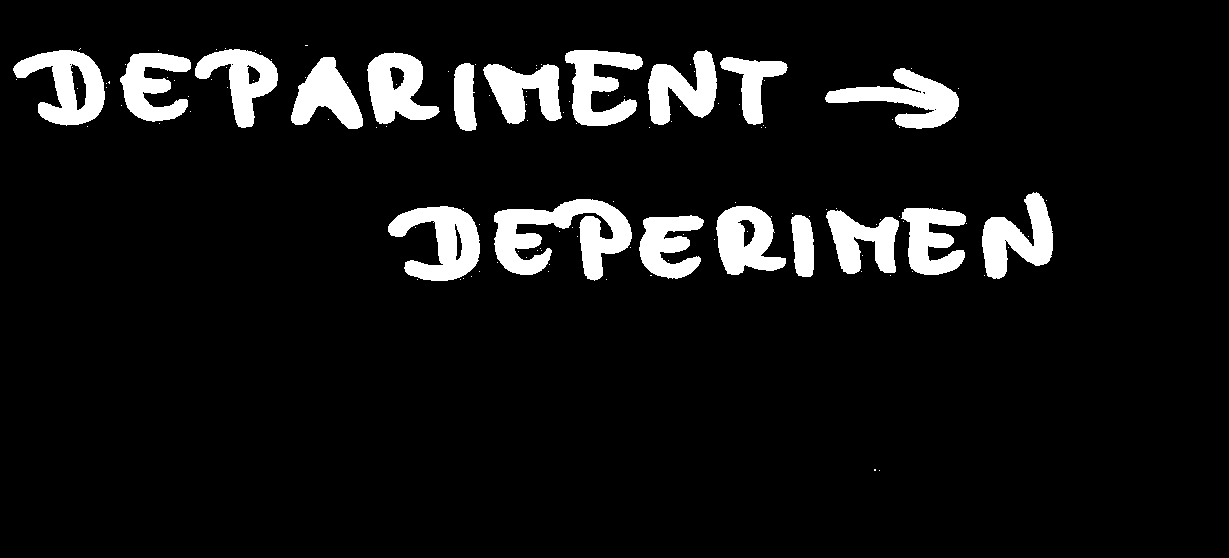 DEPARIMENT →
DEPERIMEN